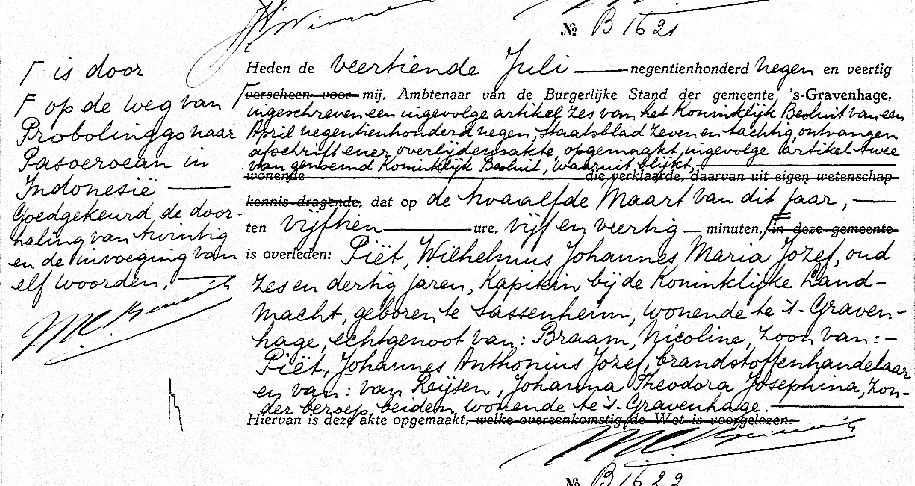 № B 1621
Γ is door
Γ op de weg van
Probolinggo naar
Pasoeroean in
Indonesië —
Goedgekeurd, de door-
haling van twintig
en de invoeging van
elf woorden. —
Heden de veertiende Juli — negentienhonderd negen en veertig
Γ verscheen voor mij, Ambtenaar van de Burgerlijke Stand der gemeente 's-Gravenhage,
ingeschreven een ingevolge artikel zes van het Koninklijk Besluit van een
April negentienhonderd negen, Staatsblad zeven en tachtig ontvangen
afschrift ener overlijdensakte opgemaakt, ingevolge artikel twee
van genoemd Koninklijk Besluit, waaruit blijkt,
wonende die verklaarde, daarvan uit eigen wetenschap
kennis dragende, dat op de twaalfde Maart van dit jaar, —
ten vijftien — ure, vijf en veertig — minuten, Γ in deze gemeente
is overleden: Piët, Wilhelmus Johannes Maria Jozef, oud
zes en dertig jaren, Kapitein bij de Koninklijke Land-
macht, geboren te Sassenheim, wonende te 's-Graven-
hage, echtgenoot van: Braam, Nicoline, zoon van: -
Piët, Johannes Anthonius Jozef, brandstoffenhandelaar
en van: van Reijsen, Johanna Theodora Josephina, zon-
der beroep, beiden wonende te 's-Gravenhage. —
Hiervan is deze akte opgemaakt, welke overeenkomstig de Wet is voorgelezen.
№ B 1622